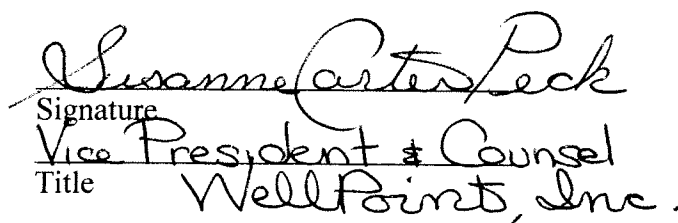 Susanne Carter Peck
Signature
Vice President & Counsel
Title
WellPoint, Inc.